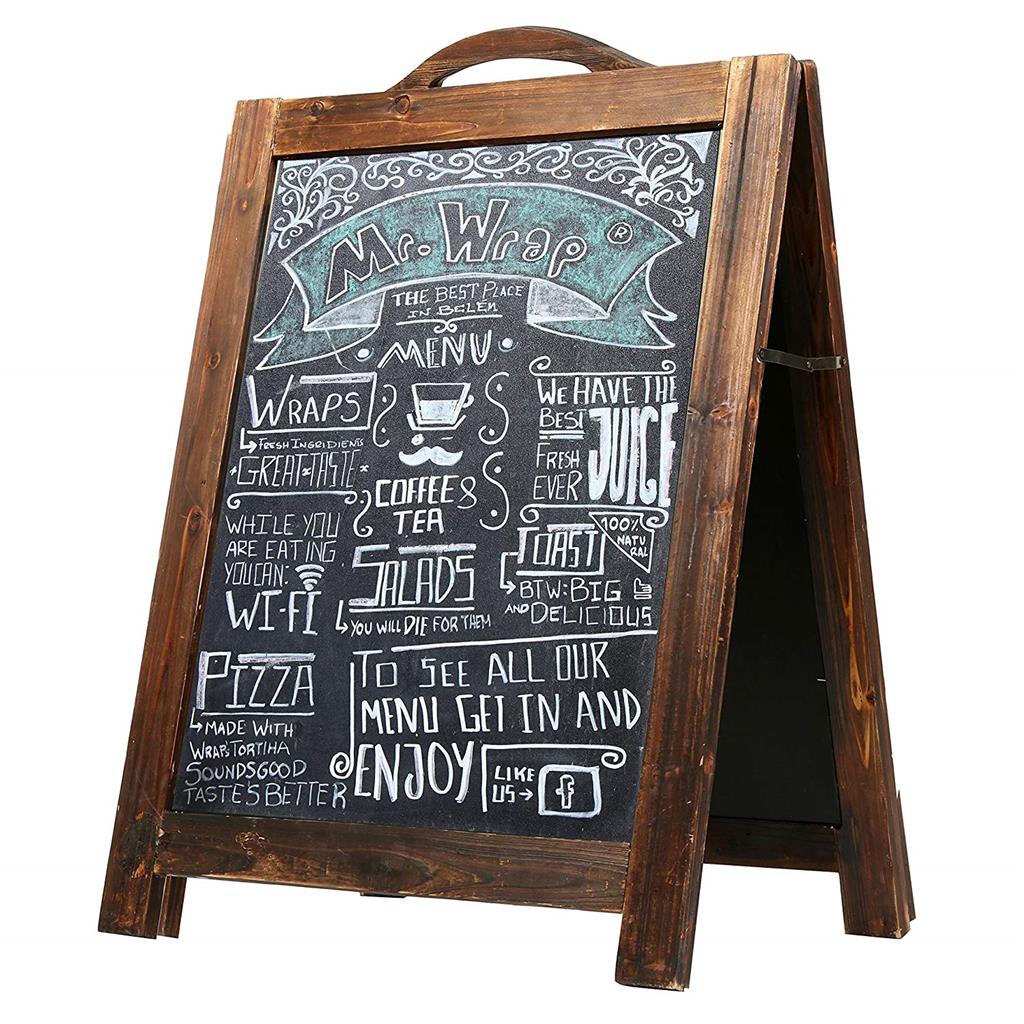 Mr. Wrap ®
THE BEST PLACE
IN BELÉM
MENU
WRAPS
FRESH INGRIDIENTS
GREAT TASTE
WHILE YOU
ARE EATING
YOU CAN:
WI-FI
COFFEE &
TEA
WE HAVE THE
BEST
JUICE
FRESH
EVER
TOAST
100%
NATU
RAL
BTW: BIG
AND DELICIOUS
SALADS
YOU WILL DIE FOR THEM
PIZZA
MADE WITH
WRAP'S TORTIHA
SOUNDS GOOD
TASTE'S BETTER
TO SEE ALL OUR
MENU GET IN AND
ENJOY
LIKE
US → f